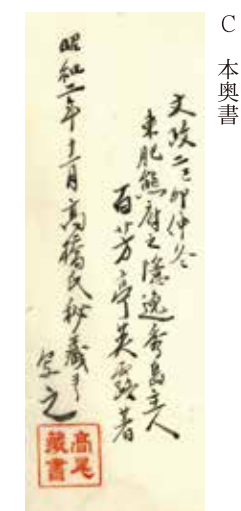 C 本奥書
文政二己卯仲冬
東肥熊府之隠逸香島主人
百芳亭英露著
昭和二年十一月高橋氏秘蔵ヲ
写之
高尾
蔵書